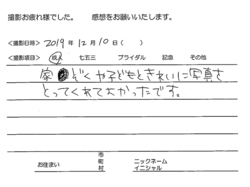 撮影お疲れ様でした。　感想をお願いいたします。
<撮影日時> 2019年 12月 10日 (　)
<撮影項目> 成人　七五三　ブライダル　記念　その他
家ぞくや子どもときれいに写真を
とってくれてよかったです。
お住まい　市町村　ニックネーム イニシャル